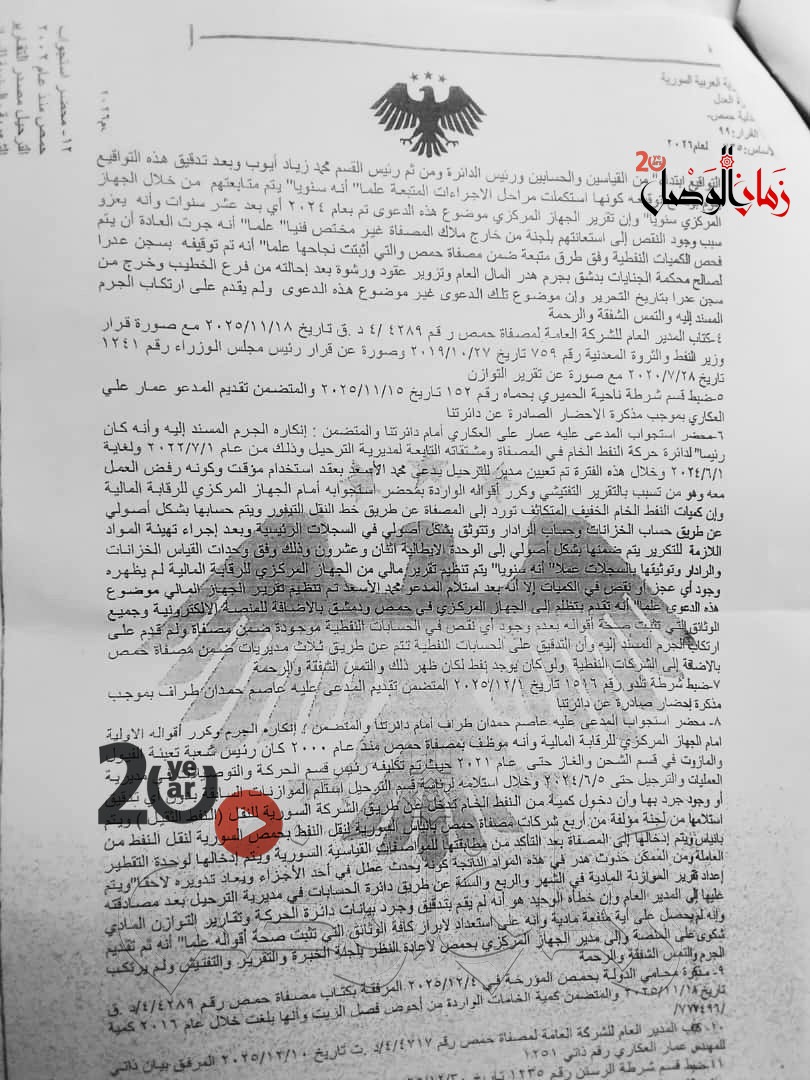 ية العربية السورية
رة العدل
دلية حمص
القرار: ٩٩
لأساس: ٥ لعام ٢٠٢٦
20 year
زمان الوصل
التواقيع ابتداء" من القياسين والحسابين ورئيس الدائرة ومن ثم رئيس القسم محمد زياد أيوب وبعد تدقيق هذه التواقيع
كونها استكملت مراحل الاجراءات المتبعة علما" أنه سنويا" يتم متابعتهم من خلال الجهاز
المركزي سنويا" وإن تقرير الجهاز المركزي موضوع هذه الدعوى تم بعام ٢٠٢٤ أي بعد عشر سنوات وأنه يعزو
سبب وجود النقص إلى استعانتهم بلجنة من خارج ملاك المصفاة غير مختص فنيا" علما" أنه جرت العادة أن يتم
فحص الكميات النفطية وفق طرق متبعة ضمن مصفاة حمص والتي أثبتت نجاحها علما" أنه تم توقيفه بسجن عدرا
لصالح محكمة الجنايات بدشق بجرم هدر المال العام وتزوير عقود ورشوة بعد إحالته من فرع الخطيب وخرج من
سجن عدرا بتاريخ التحرير وإن موضوع تلك الدعوى غير موضوع هذه الدعوى ولم يقدم على ارتكاب الجرم
المسند إليه والتمس الشفقة والرحمة
٤-كتاب المدير العام للشركة العامة لمصفاة حمص ر قم ٤٢٨٩ /٤ د .ق تاريخ ٢٠٢٥/١١/١٨ مع صورة قرار
وزير النفط والثروة المعدنية رقم ٧٥٩ تاريخ ٢٠١٩/١٠/٢٧ وصورة عن قرار رئيس مجلس الوزراء رقم ١٢٤١
تاريخ ٢٠٢٠/٧/٢٨ مع صورة عن تقرير التوازن
٥-ضبط قسم شرطة ناحية الحميري بحماه رقم ١٥٢ تاريخ ٢٠٢٥/١١/١٥ والمتضمن تقديم المدعو عمار علي
العكاري بموجب مذكرة الاحضار الصادرة عن دائرتنا
٦-محضر استجواب المدعى عليه عمار علي العكاري أمام دائرتنا والمتضمن : إنكاره الجرم المسند إليه وأنه كان
رئيسا" لدائرة حركة النفط الخام في المصفاة ومشتقاته التابعة لمديرية الترحيل وذلك من عام ٢٠٢٢/٧/١ ولغاية
٢٠٢٤/٦/١ وخلال هذه الفترة تم تعيين مدير للترحيل يدعى محمد الأسعد بعقد استخدام مؤقت وكونه رفض العمل
معه وهو من تسبب بالتقرير التفتيشي وكرر أقواله الواردة بمحضر استجوابه أمام الجهاز المركزي للرقابة المالية
وإن كميات النفط الخام الخفيف المتكاثف تورد إلى المصفاة عن طريق خط النقل التيفور ويتم حسابها بشكل أصولي
عن طريق حساب الخزانات وحساب الرادار وتتوثق بشكل أصولي في السجلات الرئيسية وبعد إجراء تهيئة المواد
اللازمة للتكرير يتم ضمنها بشكل أصولي إلى الوحدة الايطالية اثنان وعشرون وذلك وفق وحدات القياس الخزانات
والرادار وتوثيقها بالسجلات عملا" أنه سنويا" يتم تنظيم تقرير مالي من الجهاز المركزي للرقابة المالية لم يظهره
وجود أي عجز أو نقص في الكميات إلا أنه بعد استلام المدعو محمد الأسعد تم تنظيم تقرير الجهاز المالي موضوع
هذه الدعوى علما" أنه تقدم بتظلم إلى الجهاز المركزي في حمص ودمشق بالاضافة للمنصة الالكترونية وجميع
الوثائق التي تثبت صحة أقواله بعدم وجود أي نقص في الحسابات النفطية موجودة ضمن مصفاة ولم قدم على
ارتكاب الجرم المسند إليه وأن التدقيق على الحسابات النفطية تتم عن طريق ثلاث مديريات ضمن مصفاة حمص
بالاضافة إلى الشركات النفطية ولو كان يوجد نفط لكان ظهر ذلك والتمس الشفقة والرحمة
٧-ضبط شرطة تلدو رقم ١٥١٦ تاريخ ٢٠٢٥/١٢/١ المتضمن تقديم المدعى عليه عاصم حمدان طراف بموجب
مذكرة إحضار صادرة عن دائرتنا
٨- محضر استجواب المدعى عليه عاصم حمدان طراف أمام دائرتنا والمتضمن : إنكاره الجرم وكرر أقواله الاولية
امام الجهاز المركزي للرقابة المالية وأنه موظف بمصفاة حمص منذ عام ٢٠٠٠ كان رئيس شعبة تعبئة الفيول
والمازوت في قسم الشحن والغاز حتى عام ٢٠٢١ حيث تم تكليفه رئيس قسم الحركة والتوصيل في مديرية
العمليات والترحيل حتى ٢٠٢٤/٦/٥ وخلال استلامه لرئاسة قسم الترحيل استلم الموازنات السابقة
أو وجود جرد بها وأن دخول كمية من النفط الخام تدخل عن طريق الشركة السورية للنقل (النفط الثقيل) ويتم
استلامها من لجنة مؤلفة من أربع شركات مصفاة حمص بانياس السورية لنقل النفط بحمص السورية لنقل النفط من
بانياس ويتم إدخالها إلى المصفاة بعد التأكد من مطابقتها للمواصفات القياسية السورية ويتم إدخالها لوحدة التقطير
العاملة ومن الممكن حدوث هدر في هذه المواد الناتجة كونه يحدث عطل في أحد الأجزاء ويعاد تدويره لاحقا" ويتم
إعداد تقرير الموازنة المادية في الشهر والربع والسنة عن طريق دائرة الحسابات في مديرية الترحيل بعد مصادقته
عليها إلى المدير العام وإن خطأه الوحيد هو أنه لم يقم بتدقيق وجرد بيانات دائرة الحركة وتقارير التوازن المادي
وإنه لم يحصل على أية منفعة مادية وأنه على استعداد لابراز كافة الوثائق التي تثبت صحة أقواله علما" أنه تم تقديم
شكوى على المنصة وإلى مدير الجهاز المركزي بحمص لاعادة النظر بلجنة الخبرة والتقرير والتفتيش ولم يرتكب
الجرم والتمس الشفقة والرحمة
٩- مذكرة محامي الدولة بحمص المؤرخة في ٢٠٢٥/١٢/٤ المرفقة بكتاب مصفاة حمص رقم ٤/٤٢٨٩/د .ق
تاريخ ٢٠٢٥/١١/١٨ والمتضمن كمية الخامات الواردة من أحوض فصل الزيت وأنها بلغت خلال عام ٢٠١٦ كمية
/٧٧٧٤٩٦/
١٠- كتاب المدير العام للشركة العامة لمصفاة حمص رقم ٤/٤٧١٧/د .ت تاريخ ٢٠٢٥/١٢/١٠ المرفق بيان ذاتي
للمهندس عمار العكاري رقم ذاتي ١٢٥١
١١-ضبط قسم شرطة الرستن رقم ١٢٣٥ تاريخ
١٢- محضر استجواب
حمص منذ عام ٢٠٠٢
الترحيل مصدر التقارير
20 year